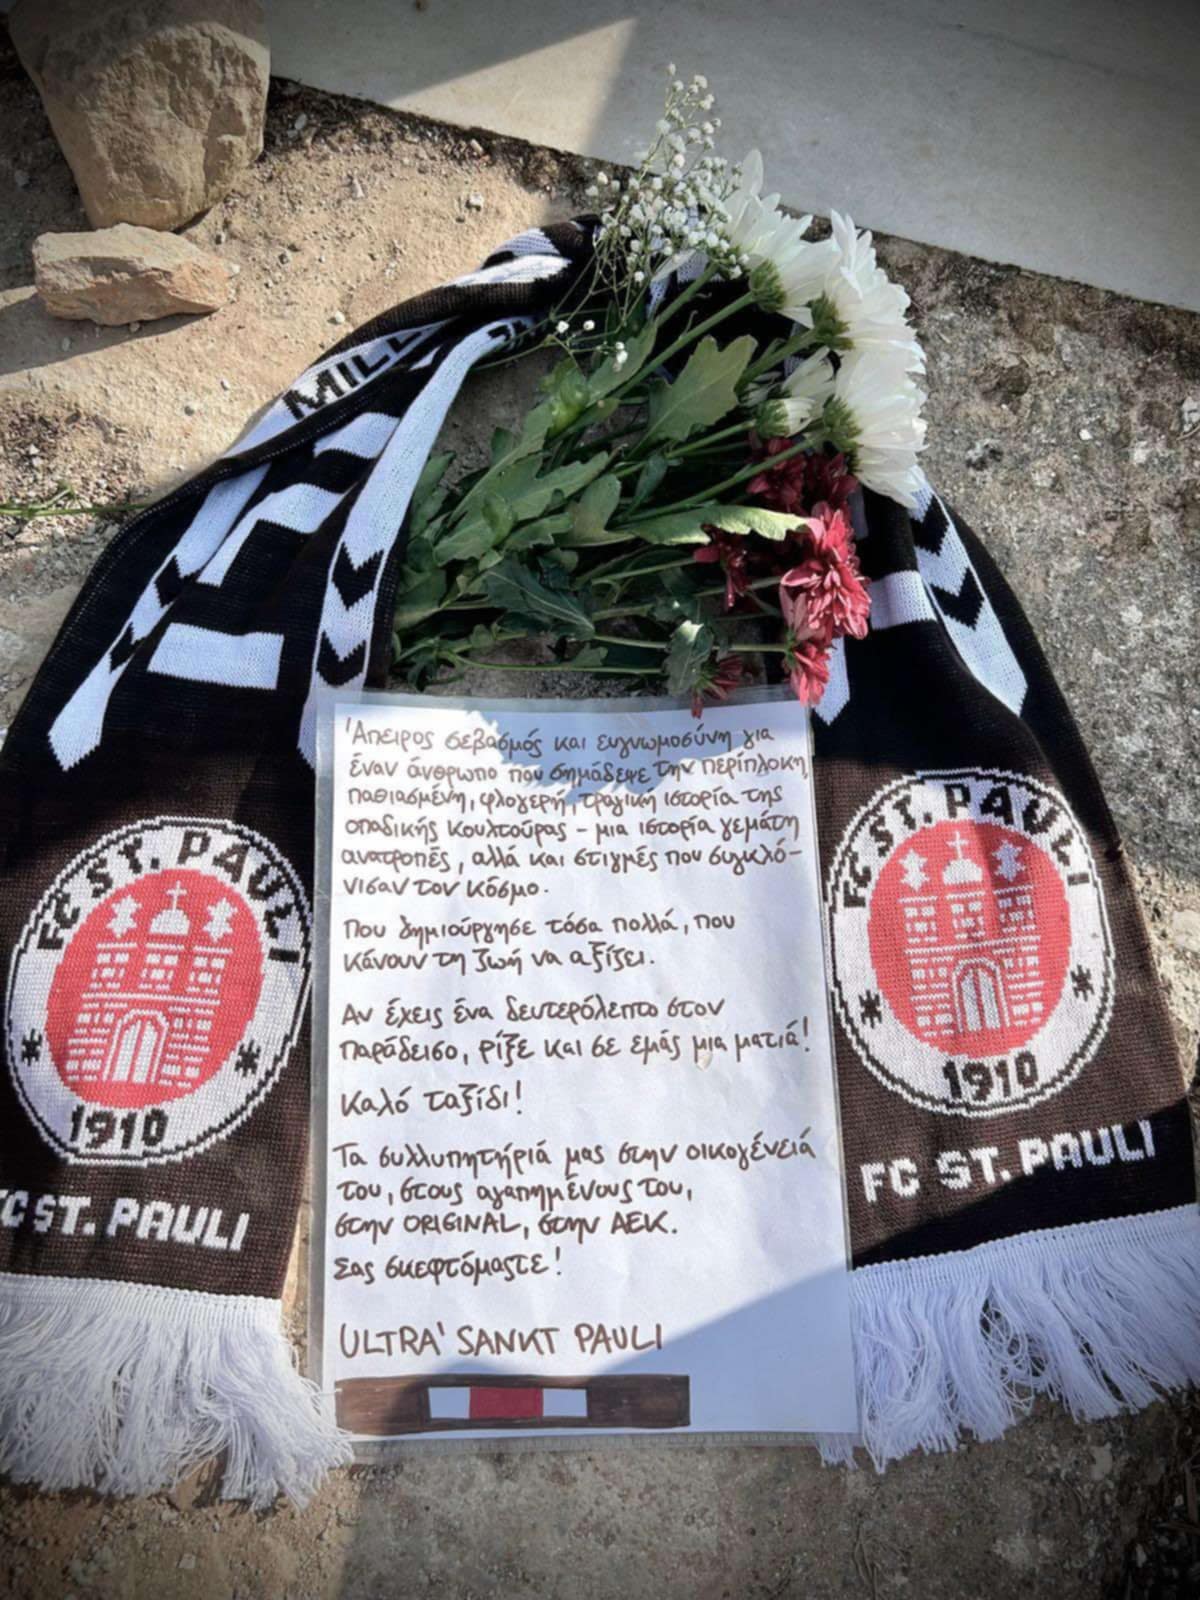 MILL
Άπειρος σεβασμός και ευγνωμοσύνη για
έναν άνθρωπο που σημάδεψε την περίπλοκη,
παθιασμένη, φλογερή, τραγική ιστορία της
οπαδικής κουλτούρας – μια ιστορία γεμάτη
ανατροπές, αλλά και στιγμές που συγκλό-
νισαν τον κόσμο.
Που δημιούργησε τόσα πολλά, που
κάνουν τη ζωή να αξίζει.
Αν έχεις ένα δευτερόλεπτο στον
παράδεισο, ρίξε και σε εμάς μια ματιά!
Καλό ταξίδι!
Τα συλλυπητήριά μας στην οικογένειά
του, στους αγαπημένους του,
στην ORIGINAL, στην ΑΕΚ.
Σας σκεφτόμαστε!
ULTRA' SANKT PAULI
FC ST. PAULI
1910
FC ST. PAULI
FC ST. PAULI
1910
FC ST. PAULI